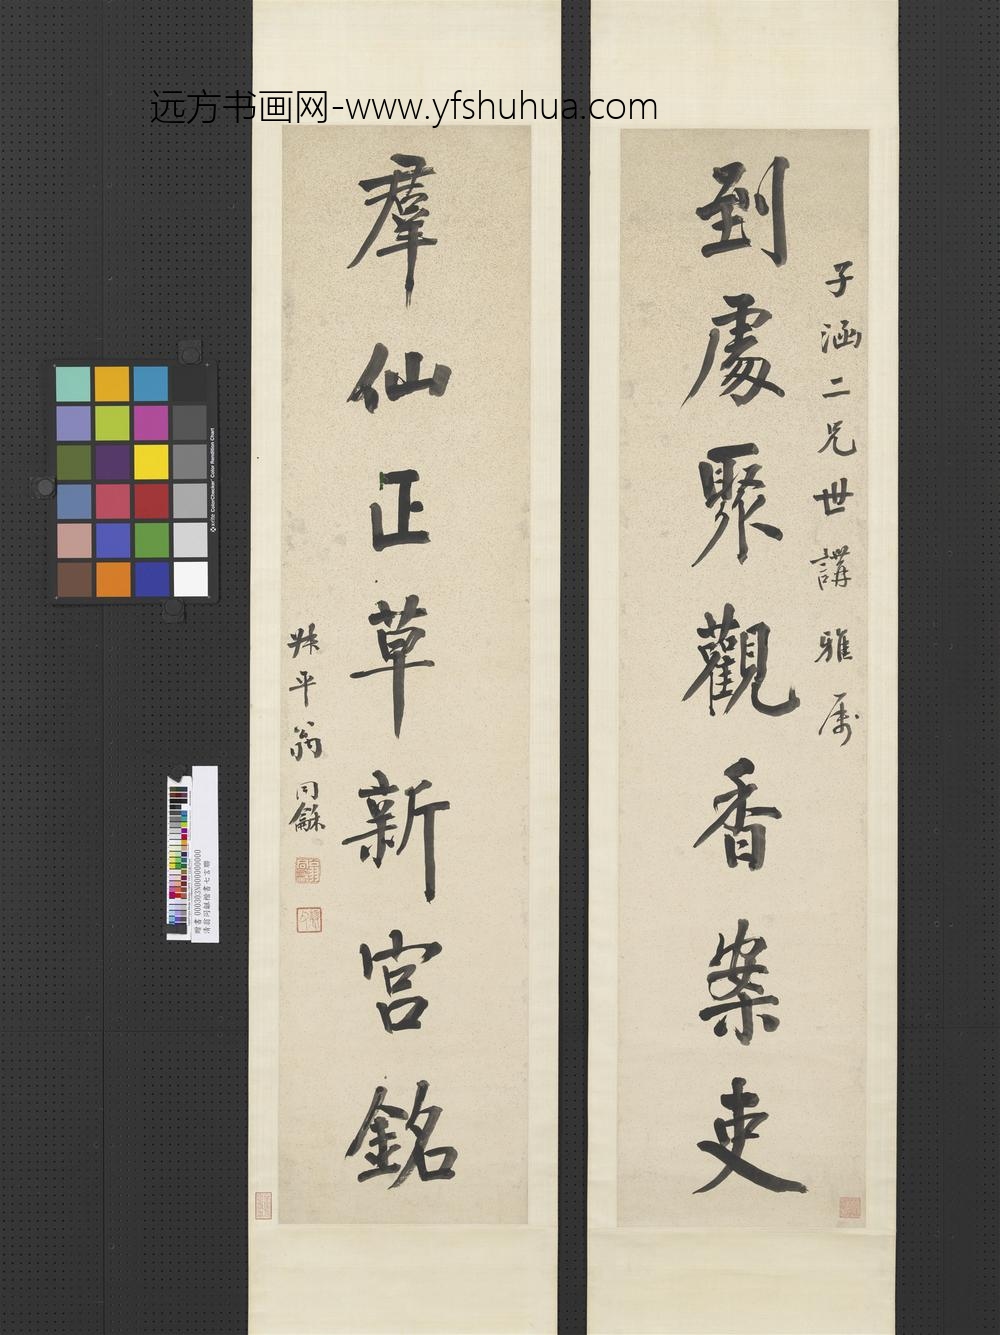 远方书画网-www.yfshuhua.com
子涵二兄世講雅属
到處聚觀香案吏
羣仙正草新宮銘
叔平翁同龢